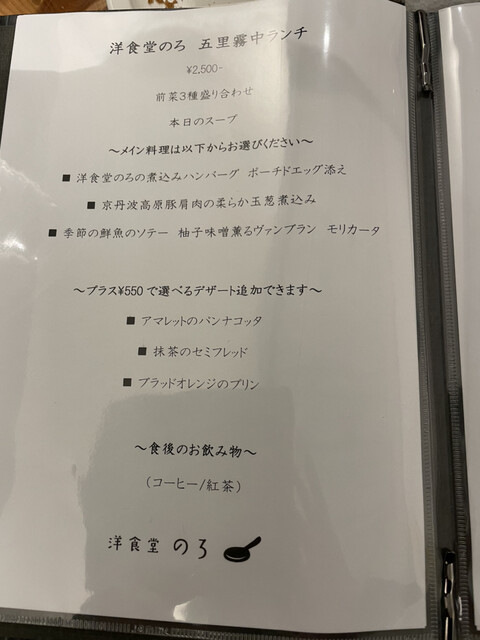 洋食堂のろ 五里霧中ランチ
¥2.500-
前菜3種盛り合わせ
本日のスープ
～メイン料理は以下からお選びください～
■ 洋食堂のろの煮込みハンバーグ ポーチドエッグ添え
■ 京丹波高原豚肩肉の柔らか玉葱煮込み
■ 季節の鮮魚のソテー 柚子味噌薫るヴァンブラン モリカータ
～プラス¥550で選べるデザート追加できます～
■ アマレットのパンナコッタ
■ 抹茶のセミフレッド
■ ブラッドオレンジのプリン
～食後のお飲み物～
(コーヒー/紅茶)
洋食堂 のろ